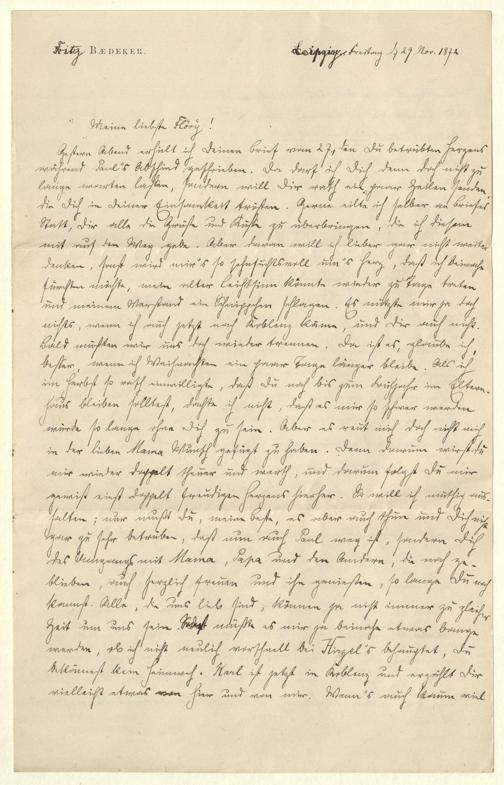 Fritz BÆDEKER.
Leipzig, Freitag d 29. Nov. 1872
Meine liebste Flöry!
Gestern Abend erhielt ich Deinen Brief vom 27, den Du betrübten Herzens
während Paul's Abschied geschrieben. Da darf ich Dich denn doch nicht zu
lange warten lassen, sondern will Dir rasch ein paar Zeilen senden
die Dich in Deiner Einsamkeit trösten. Gerne eilte ich selber an Briefes
Statt, Dir alle die Grüße und Küsse zu überbringen, die ich diesem
mit auf den Weg gebe. Aber daran will ich lieber gar nicht weiter
denken, sonst wird mir's so sehnsuchtsvoll um's Herz, daß ich beinahe
fürchten müßte, mein alter Leichtsinn könnte wieder zu Tage treten
und meinem Verstand ein Schnippchen schlagen. Es nützte mir ja doch
nichts, wenn ich auch jetzt nach Koblenz käme, und Dir auch nicht.
Bald müßten wir uns doch wieder trennen. Da ist es, glaube ich,
besser, wenn ich Weihnachten ein paar Tage länger bleibe. Als ich
im Herbst so rasch einwilligte, daß Du noch bis zum Frühjahr im Eltern-
haus bleiben solltest, dachte ich nicht, daß es mir so schwer werden
würde so lange ohne Dich zu sein. Aber es reut mich doch nicht mich
in der lieben Mama Wunsch gefügt zu haben. Denn darum wirst Du
mir wieder doppelt theuer und werth, und darum folgst Du mir
gewiß einst doppelt freudigen Herzens hierher. So will ich muthig aus-
halten; nur mußt Du, meine beste, es aber auch thun und Dich nicht
gar zu sehr betrüben, daß nun auch Paul weg ist, sondern Dich
des Umgangs mit Mama, Papa und den Andern, die noch ge-
blieben, auch herzlich freuen und ihn genießen, so lange Du noch
kannst. Alle, die uns lieb sind, können ja nicht immer zu gleicher
Zeit um uns sein. Sonst müßte es mir ja beinahe etwas bange
werden, ob ich nicht neulich vorschnell bei Hirzel's behauptet, Du
bekämest kein Heimweh. Karl ist jetzt in Koblenz und erzählt Dir
vielleicht etwas von hier und von mir. Wenn's auch kaum viel